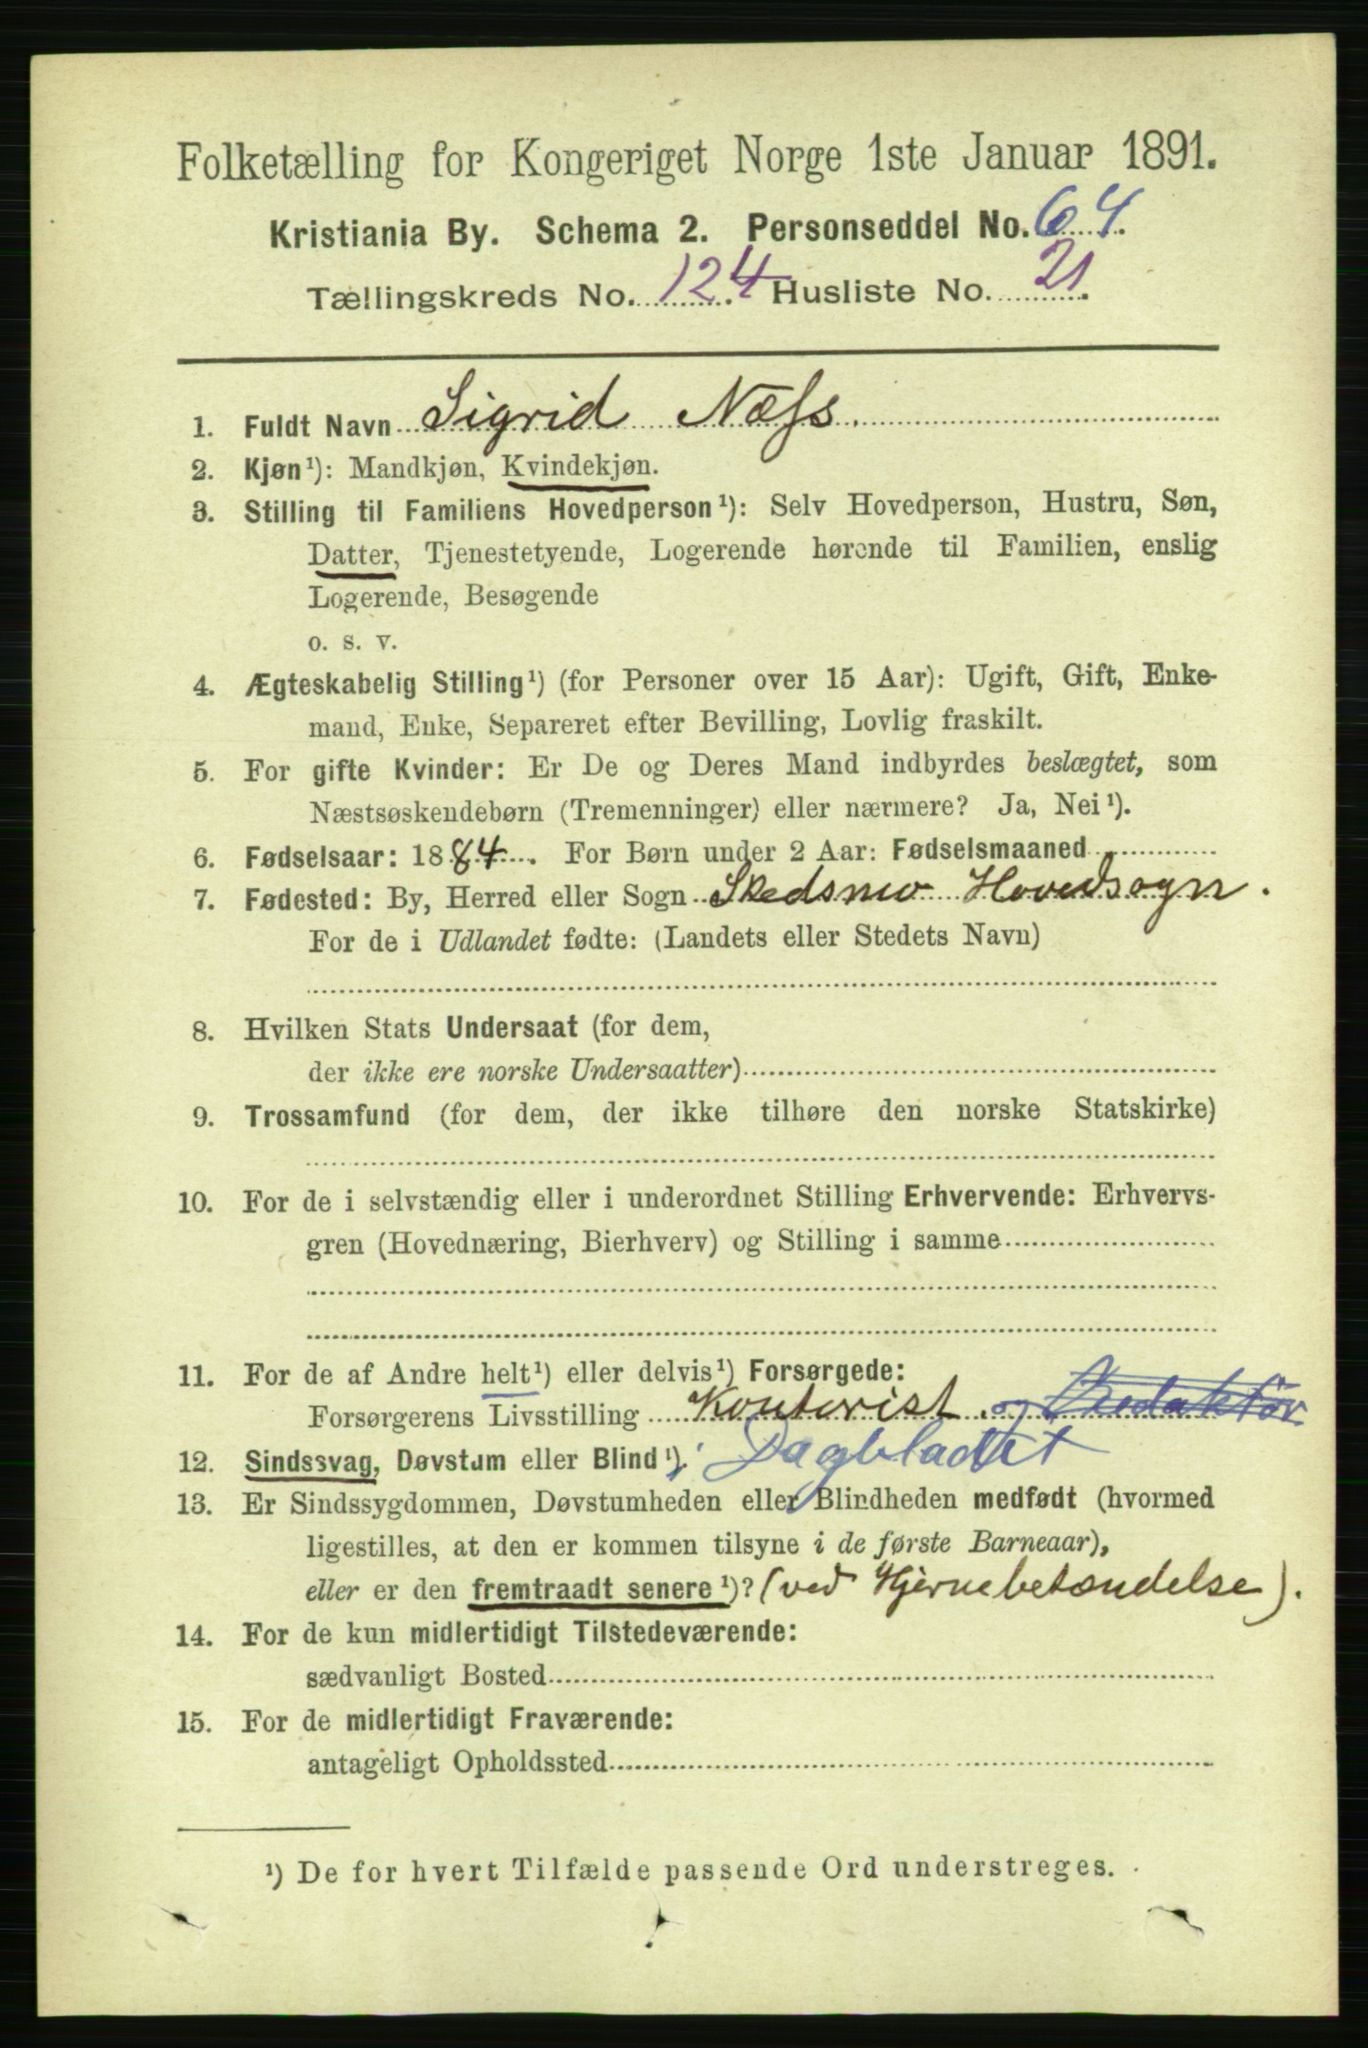 Folketælling for Kongeriget Norge 1ste Januar 1891.
Kristiania By. Schema 2. Personseddel No. 64.
Tællingskreds No. 124 Husliste No. 21.
1. Fuldt Navn Sigrid Næss.
2. Kjøn¹): Mandkjøn, Kvindekjøn.
3. Stilling til Familiens Hovedperson¹): Selv Hovedperson, Hustru, Søn,
Datter, Tjenestetyende, Logerende hørende til Familien, enslig
Logerende, Besøgende
o. s. v.
4. Ægteskabelig Stilling¹) (for Personer over 15 Aar): Ugift, Gift, Enke-
mand, Enke, Separeret efter Bevilling, Lovlig fraskilt.
5. For gifte Kvinder: Er De og Deres Mand indbyrdes beslægtet, som
Næstsøskendebørn (Tremenninger) eller nærmere? Ja, Nei¹).
6. Fødselsaar: 1884. For Børn under 2 Aar: Fødselsmaaned
7. Fødested: By, Herred eller Sogn Skedsmo Hovedsogn.
For de i Udlandet fødte: (Landets eller Stedets Navn)
8. Hvilken Stats Undersaat (for dem,
der ikke ere norske Undersaatter)
9. Trossamfund (for dem, der ikke tilhøre den norske Statskirke)
10. For de i selvstændig eller i underordnet Stilling Erhvervende: Erhvervs-
gren (Hovednæring, Bierhverv) og Stilling i samme
11. For de af Andre helt¹) eller delvis¹) Forsørgede:
Forsørgerens Livsstilling Kontorist. og Redaktør
12. Sindssvag, Døvstum eller Blind¹). i Dagbladet
13. Er Sindssygdommen, Døvstumheden eller Blindheden medfødt (hvormed
ligestilles, at den er kommen tilsyne i de første Barneaar),
eller er den fremtraadt senere¹)? (ved Hjernebetændelse).
14. For de kun midlertidigt Tilstedeværende:
sædvanligt Bosted
15. For de midlertidigt Fraværende:
antageligt Opholdssted
¹) De for hvert Tilfælde passende Ord understreges.